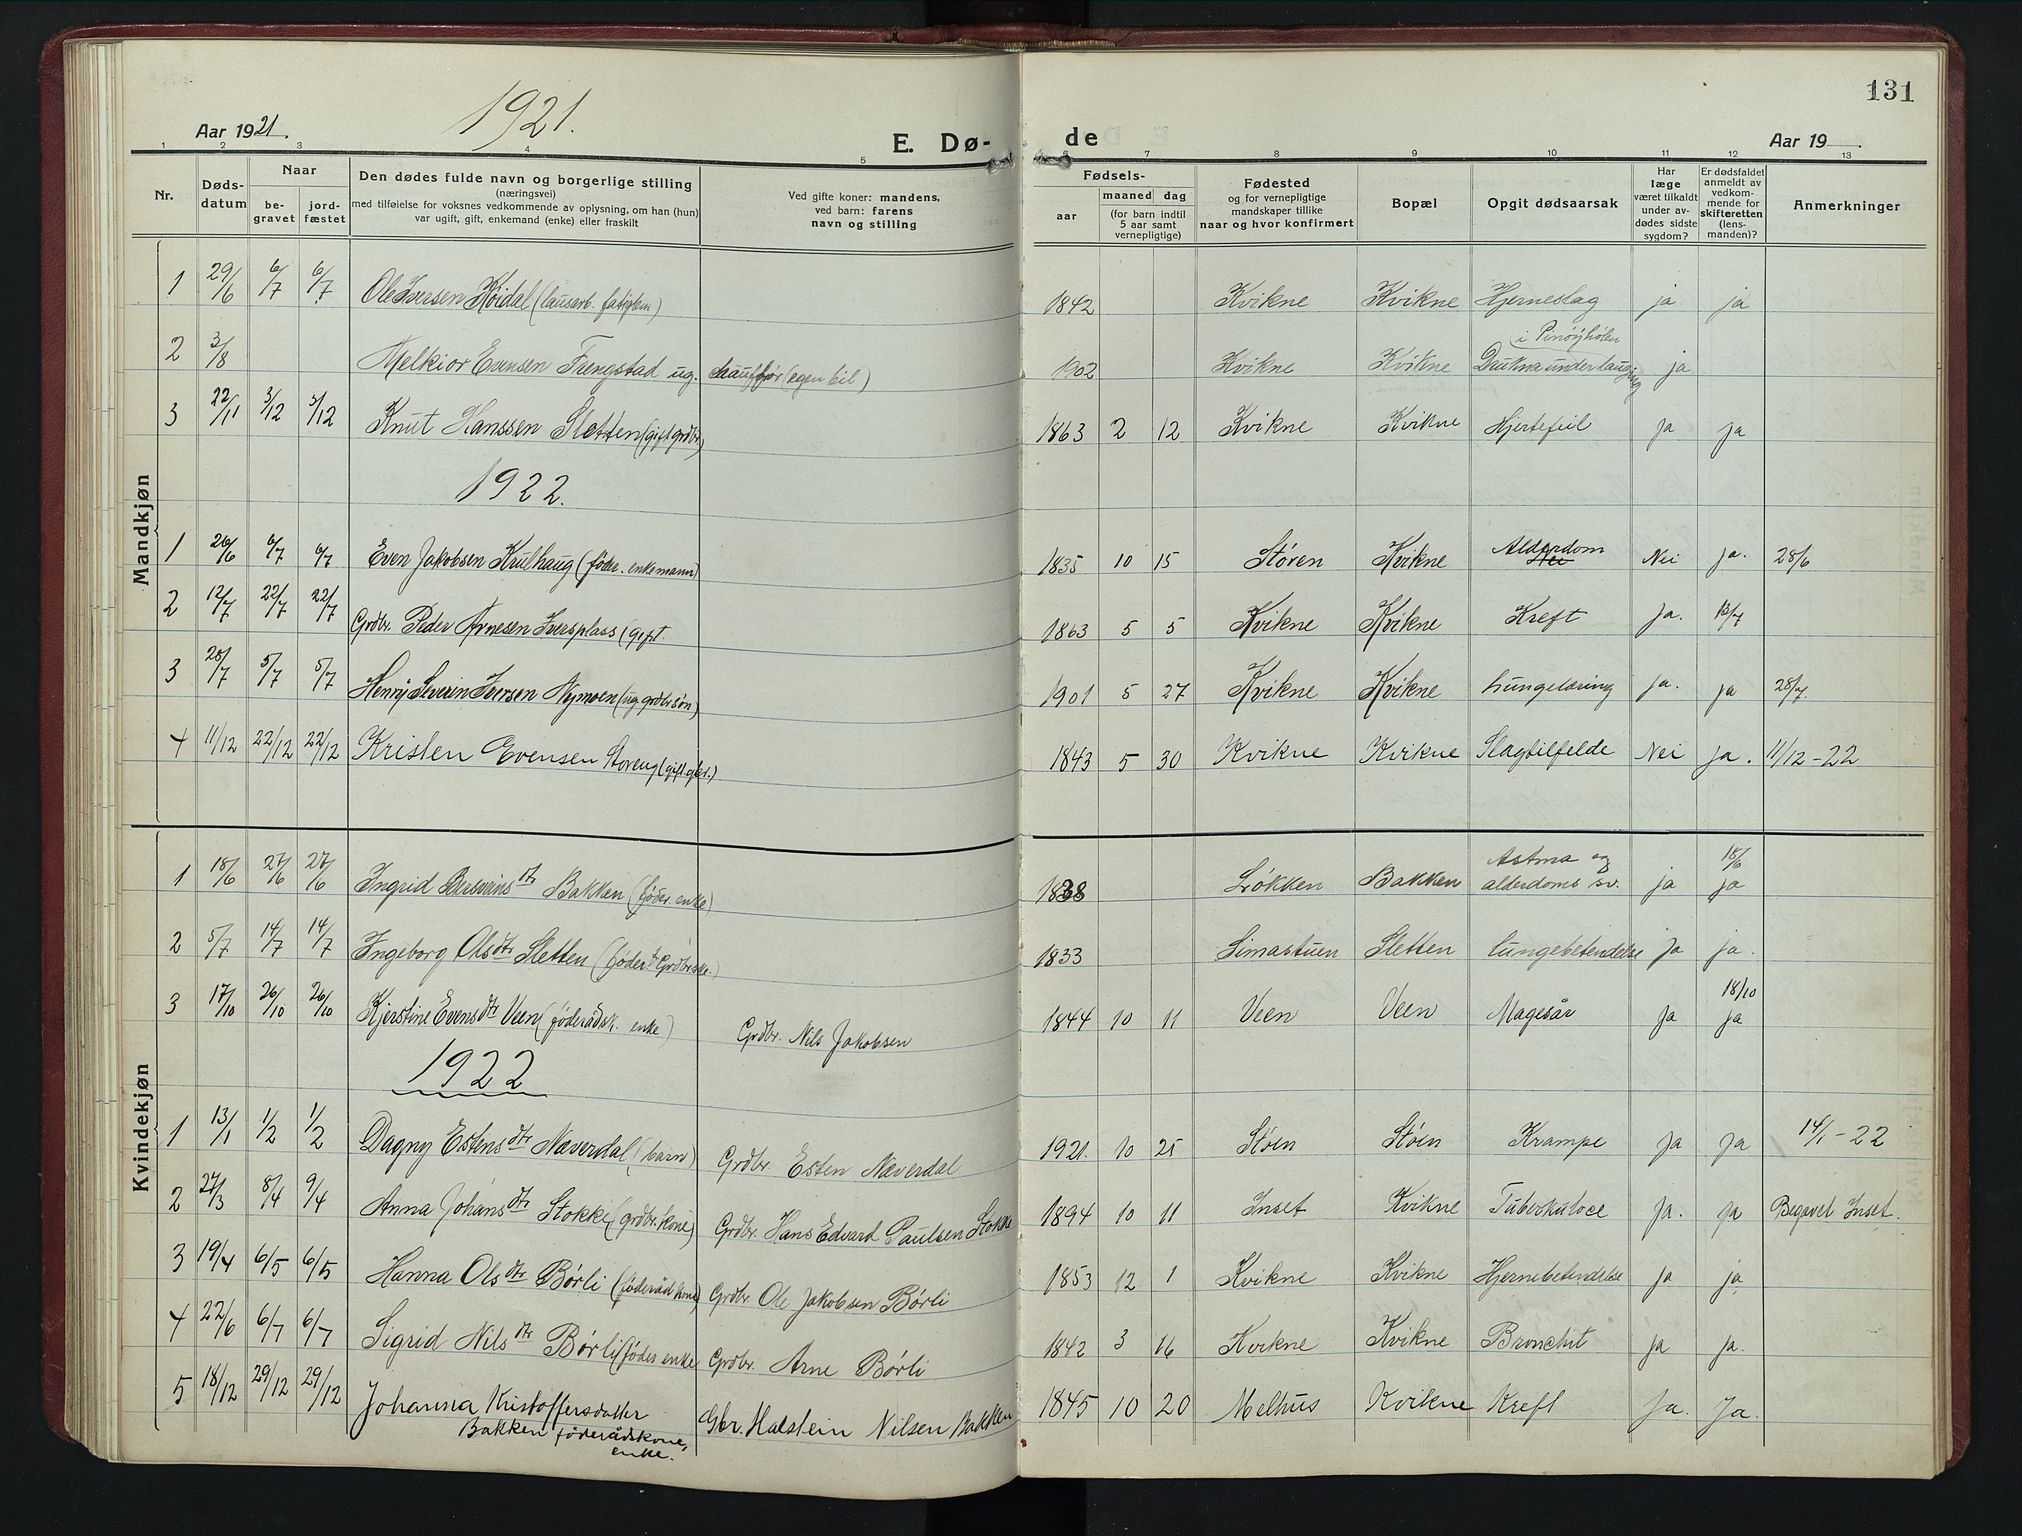 131
Aar 1921.
1921.
E. Dø-
de
Aar 19
1 2 3 4 5 6 7 8 9 10 11 12 13
Nr.
Døds-
datum
Naar
be-
gravet
jord-
fæstet
Den dødes fulde navn og borgerlige stilling
(næringsvei)
med tilføielse for voksnes vedkommende av oplysning, om han (hun)
var ugift, gift, enkemand (enke) eller fraskilt
Ved gifte koner: mandens,
ved barn: farens
navn og stilling
Fødsels-
aar
maaned
dag
(for barn indtil
5 aar samt
vernepligtige)
Fødested
og for vernepligtige
mandskaper tillike
naar og hvor konfirmert
Bopæl
Opgit dødsaarsak
Har
læge
været tilkaldt
under av-
dødes sidste
sygdom?
Er dødsfaldet
anmeldt av
vedkom-
mende for
skifteretten
(lens-
manden)?
Anmerkninger
Mandkjøn
1 29/6 6/7 6/7 Ole Iversen Høidal (lausarb. fatigkem) 1842 Kvikne Kvikne Hjerneslag ja ja
2 3/8 Melkior Evensen Frengstad ug. chauffør (egen bil) 1902 Kvikne Kvikne Drukna under laugjing i Pinøyhølen ja
3 22/11 3/12 3/12 Knut Hanssen Sletten (gift grdbr.) 1863 2 12 Kvikne Kvikne Hjertefeil ja ja
1922.
1 26/6 6/7 6/7 Even Jakobsen Krulhaug (føder. enkemann) 1835 10 15 Støren Kvikne Alderdom Nei Nei ja. 28/6
2 12/7 22/7 22/7 Grdbr. Peder Arnesen Iversplass (gift. 1863 5 5 Kvikne Kvikne Kreft ja. 13/7
3 28/7 5/7 5/7 Henrij Severin Iversen Nymoen (ug. grdbr. søn) 1901 5 27 Kvikne Kvikne Lungetæring ja. ja 28/7.
4 11/12 22/12 22/12 Kristen Evensen Storeng (gift. gbr.) 1843 5 30 Kvikne Kvikne Slagtilfelde Nei ja. 11/12-22
Kvindekjøn
1 18/6 27/6 27/6 Ingrid dtr Bakken (føder. enke) 1838 Løkken Bakken Astma og alderdoms sv. ja 18/6 ja
2 5/7 14/7 14/7 Ingeborg Olsdtr Sletten 1833 Simastuen Sletten Lungebetendelse ja ja.
3 17/10 26/10 26/10 Kjerstine Evensdtr Veen (føderådsk. enke) Grdbr. Nils Jakobsen 1844 10 11 Veen Veen Magesår ja 18/10 ja
1922
1 13/1 1/2 1/2 Dagny Estensdtr Næverdal (barn) Grdbr. Esten Næverdal 1921. 10 25 Støen Støen Krampe ja ja 14/1-22
2 27/3 8/4 9/4 Anna Johansdtr Stokke (grdbr. kone) Grdbr. Hans Edvard Paulsen Stokke 1894 10 11 Inset Kvikne Tuberkulose ja. ja Begavet Inset.
3 19/4 6/5 6/5 Hanna Olsdtr Børli (føderåd kone) Grdbr. Ole Jakobsen Børli 1853 12 1 Kvikne Kvikne Hjernebetendelse ja ja,
4 22/6 6/7 6/7 Sigrid Nilsdtr Børli (føder enke Grdbr. Arne Børli 1842 3 16 Kvikne Kvikne Bronchit ja ja.
5 18/12 29/12 29/12 Johanna Kristoffersdatter Gbr. Halstein Nilsen Bakken 1845 10 20 Melhus Kvikne Kreft Ja. Ja.
Bakken føderådskone,
enke.